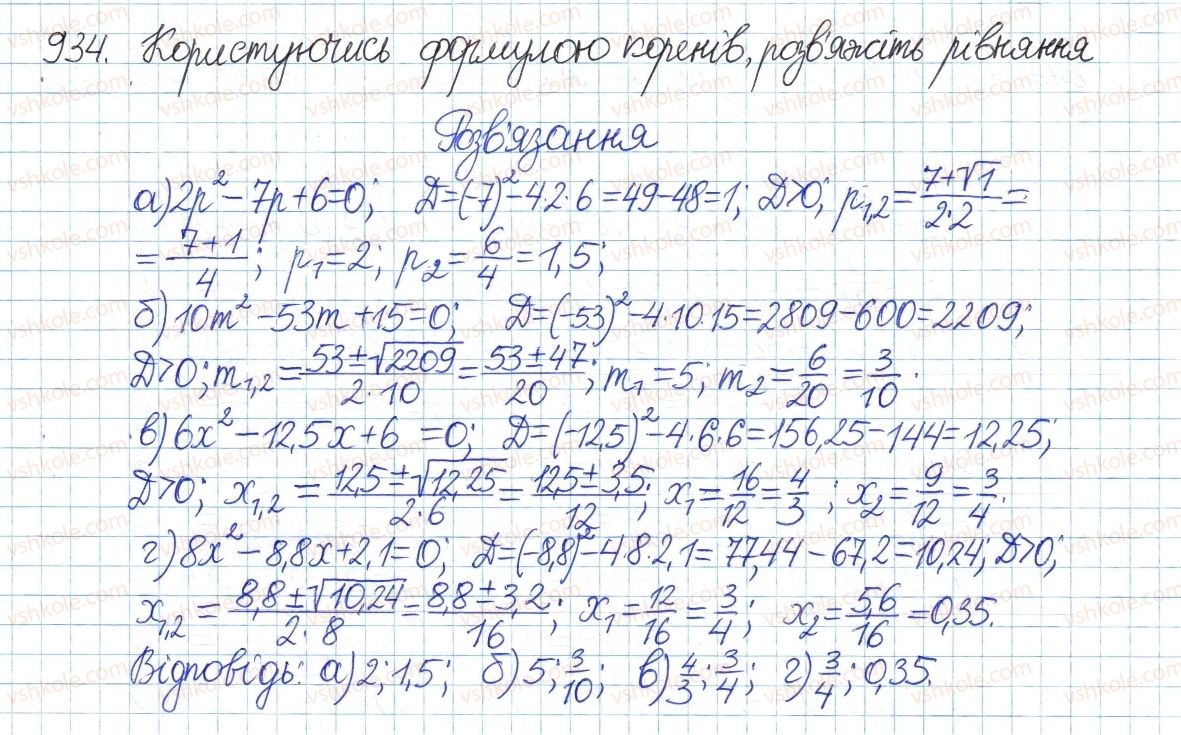 934. Користуючись формулою коренів, розв'яжіть рівняння
Розв'язання
а) 2p² - 7p + 6 = 0; Д = (-7)² - 4·2·6 = 49 - 48 = 1; Д > 0; p₁,₂ = (7+√1)/(2·2) =
= (7+1)/4; p₁ = 2; p₂ = 6/4 = 1,5;
б) 10m² - 53m + 15 = 0; Д = (-53)² - 4·10·15 = 2809 - 600 = 2209;
Д > 0; m₁,₂ = (53±√2209)/(2·10) = (53±47)/20; m₁ = 5; m₂ = 6/20 = 3/10.
в) 6x² - 12,5x + 6 = 0; Д = (-12,5)² - 4·6·6 = 156,25 - 144 = 12,25;
Д > 0; x₁,₂ = (12,5±√12,25)/(2·6) = (12,5±3,5)/12; x₁ = 16/12 = 4/3; x₂ = 9/12 = 3/4.
г) 8x² - 8,8x + 2,1 = 0; Д = (-8,8)² - 4·8·2,1 = 77,44 - 67,2 = 10,24; Д > 0;
x₁,₂ = (8,8±√10,24)/(2·8) = (8,8±3,2)/16; x₁ = 12/16 = 3/4; x₂ = 5,6/16 = 0,35.
Відповідь: а) 2; 1,5; б) 5; 3/10; в) 4/3; 3/4; г) 3/4; 0,35.
vshkole.com